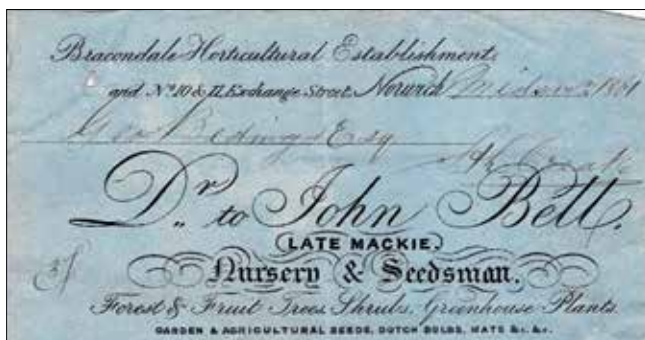 Bracondale Horticultural Establishment,
and Nº 10 & 11, Exchange Street, Norwich 1861
Geo Esq
Dr. to John Bell.
LATE MACKIE,
Nursery & Seedsman.
Forest & Fruit Trees, Shrubs, Greenhouse Plants.
GARDEN & AGRICULTURAL SEEDS, DUTCH BULBS, MATS &c. &c.